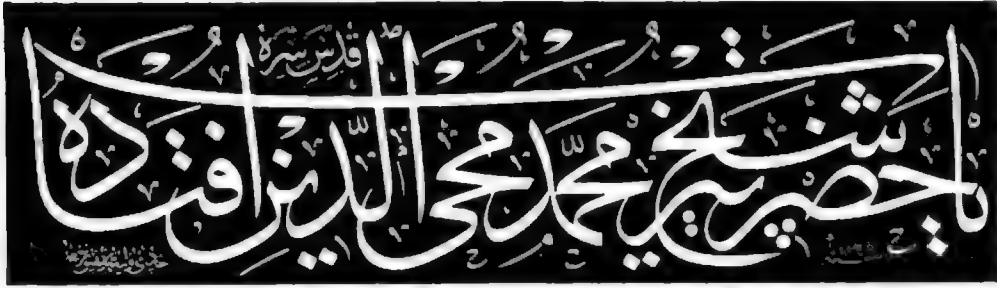 يا حضرت پير شيخ محمد محيى الدين افتاده
قدس سره